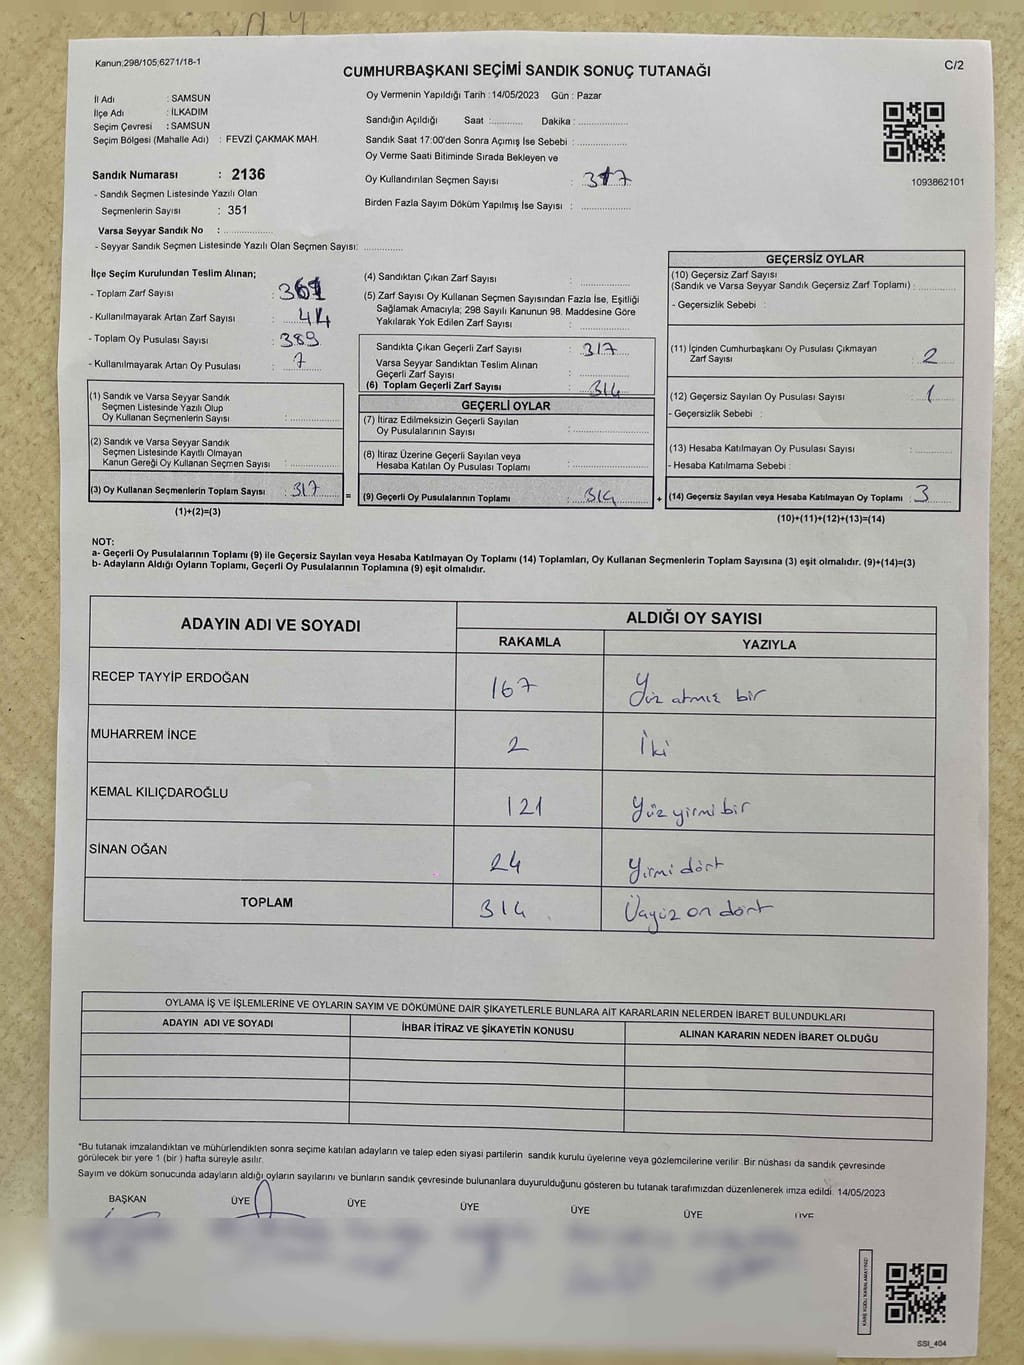 Kanun;298/105;6271/18-1
C/2
CUMHURBAŞKANI SEÇİMİ SANDIK SONUÇ TUTANAĞI
İl Adı : SAMSUN
İlçe Adı : İLKADIM
Seçim Çevresi : SAMSUN
Seçim Bölgesi (Mahalle Adı) : FEVZİ ÇAKMAK MAH.
Sandık Numarası : 2136
- Sandık Seçmen Listesinde Yazılı Olan
Seçmenlerin Sayısı : 351
Varsa Seyyar Sandık No : ................
- Seyyar Sandık Seçmen Listesinde Yazılı Olan Seçmen Sayısı: .............
Oy Vermenin Yapıldığı Tarih : 14/05/2023 Gün : Pazar
Sandığın Açıldığı Saat :........... Dakika :.................
Sandık Saat 17:00'den Sonra Açımış İse Sebebi :.................
Oy Verme Saati Bitiminde Sırada Bekleyen ve
Oy Kullandırılan Seçmen Sayısı : 317
Birden Fazla Sayım Döküm Yapılmış İse Sayısı : .................
1093862101
İlçe Seçim Kurulundan Teslim Alınan;
- Toplam Zarf Sayısı : 361
- Kullanılmayarak Artan Zarf Sayısı : 44
- Toplam Oy Pusulası Sayısı : 389
- Kullanılmayarak Artan Oy Pusulası : 7
(1) Sandık ve Varsa Seyyar Sandık
Seçmen Listesinde Yazılı Olup
Oy Kullanan Seçmenlerin Sayısı :.................
(2) Sandık ve Varsa Seyyar Sandık
Seçmen Listesinde Kayıtlı Olmayan
Kanun Gereği Oy Kullanan Seçmen Sayısı :.................
(3) Oy Kullanan Seçmenlerin Toplam Sayısı : 317
(1)+(2)=(3)
=
(4) Sandıktan Çıkan Zarf Sayısı : .................
(5) Zarf Sayısı Oy Kullanan Seçmen Sayısından Fazla İse, Eşitliği
Sağlamak Amacıyla; 298 Sayılı Kanunun 98. Maddesine Göre
Yakılarak Yok Edilen Zarf Sayısı : .................
Sandıkta Çıkan Geçerli Zarf Sayısı : 317
Varsa Seyyar Sandıktan Teslim Alınan
Geçerli Zarf Sayısı : .................
(6) Toplam Geçerli Zarf Sayısı : 314
GEÇERLİ OYLAR
(7) İtiraz Edilmeksizin Geçerli Sayılan
Oy Pusulalarının Sayısı :.................
(8) İtiraz Üzerine Geçerli Sayılan veya
Hesaba Katılan Oy Pusulası Toplamı :.................
(9) Geçerli Oy Pusulalarının Toplamı : 314
+
GEÇERSİZ OYLAR
(10) Geçersiz Zarf Sayısı
(Sandık ve Varsa Seyyar Sandık Geçersiz Zarf Toplamı) : ............
- Geçersizlik Sebebi :
(11) İçinden Cumhurbaşkanı Oy Pusulası Çıkmayan
Zarf Sayısı : 2
(12) Geçersiz Sayılan Oy Pusulası Sayısı : 1
- Geçersizlik Sebebi :
(13) Hesaba Katılmayan Oy Pusulası Sayısı : ............
- Hesaba Katılmama Sebebi :
(14) Geçersiz Sayılan veya Hesaba Katılmayan Oy Toplamı : 3
(10)+(11)+(12)+(13)=(14)
NOT:
a- Geçerli Oy Pusulalarının Toplamı (9) ile Geçersiz Sayılan veya Hesaba Katılmayan Oy Toplamı (14) Toplamları, Oy Kullanan Seçmenlerin Toplam Sayısına (3) eşit olmalıdır. (9)+(14)=(3)
b- Adayların Aldığı Oyların Toplamı, Geçerli Oy Pusulalarının Toplamına (9) eşit olmalıdır.
ADAYIN ADI VE SOYADI
ALDIĞI OY SAYISI
RAKAMLA YAZIYLA
RECEP TAYYİP ERDOĞAN 167 Yüz atmış bir
MUHARREM İNCE 2 İki
KEMAL KILIÇDAROĞLU 121 Yüz yirmi bir
SİNAN OĞAN 24 Yirmi dört
TOPLAM 314 Üçyüz on dört
OYLAMA İŞ VE İŞLEMLERİNE VE OYLARIN SAYIM VE DÖKÜMÜNE DAİR ŞİKAYETLERLE BUNLARA AİT KARARLARIN NELERDEN İBARET BULUNDUKLARI
ADAYIN ADI VE SOYADI İHBAR İTİRAZ VE ŞİKAYETİN KONUSU ALINAN KARARIN NEDEN İBARET OLDUĞU
*Bu tutanak imzalandıktan ve mühürlendikten sonra seçime katılan adayların ve talep eden siyasi partilerin sandık kurulu üyelerine veya gözlemcilerine verilir. Bir nüshası da sandık çevresinde
görülecek bir yere 1 (bir ) hafta süreyle asılır.
Sayım ve döküm sonucunda adayların aldığı oyların sayılarını ve bunların sandık çevresinde bulunanlara duyurulduğunu gösteren bu tutanak tarafımızdan düzenlenerek imza edildi. 14/05/2023
BAŞKAN ÜYE ÜYE ÜYE ÜYE ÜYE ÜYE
KARE KODU KARALAMAYINIZ!
SSI_404